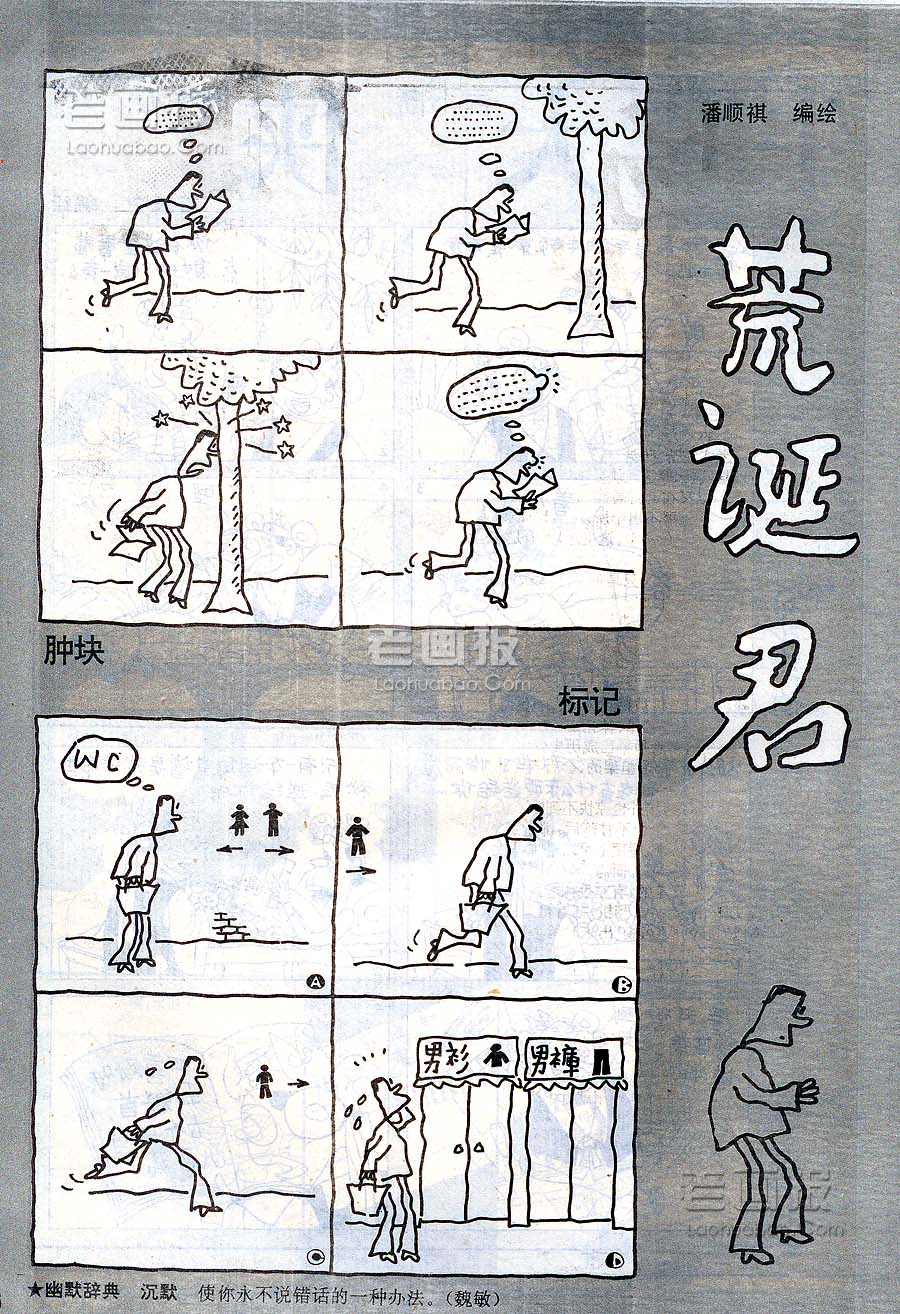 潘顺祺 编绘
荒诞君
老画报
Laohuabao.Com
肿块
老画报
Laohuabao.Com
标记
WC
A
B
C
男衫
男裤
D
老画报
Laohuabao.Com
★幽默辞典 沉默 使你永不说错话的一种办法。（魏敏）